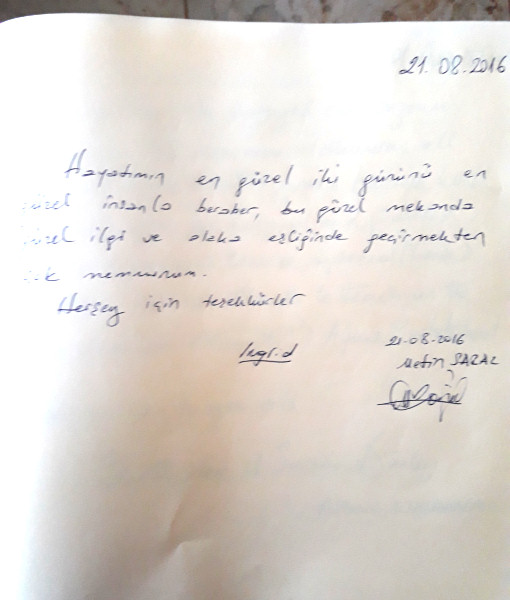 21.08.2016
Hayatımın en güzel iki gününü en
güzel insanla beraber, bu güzel mekanda
güzel ilgi ve alaka eşliğinde geçirmekten
memnunum.
Herşey için teşekkürler
21.08.2016
Metin